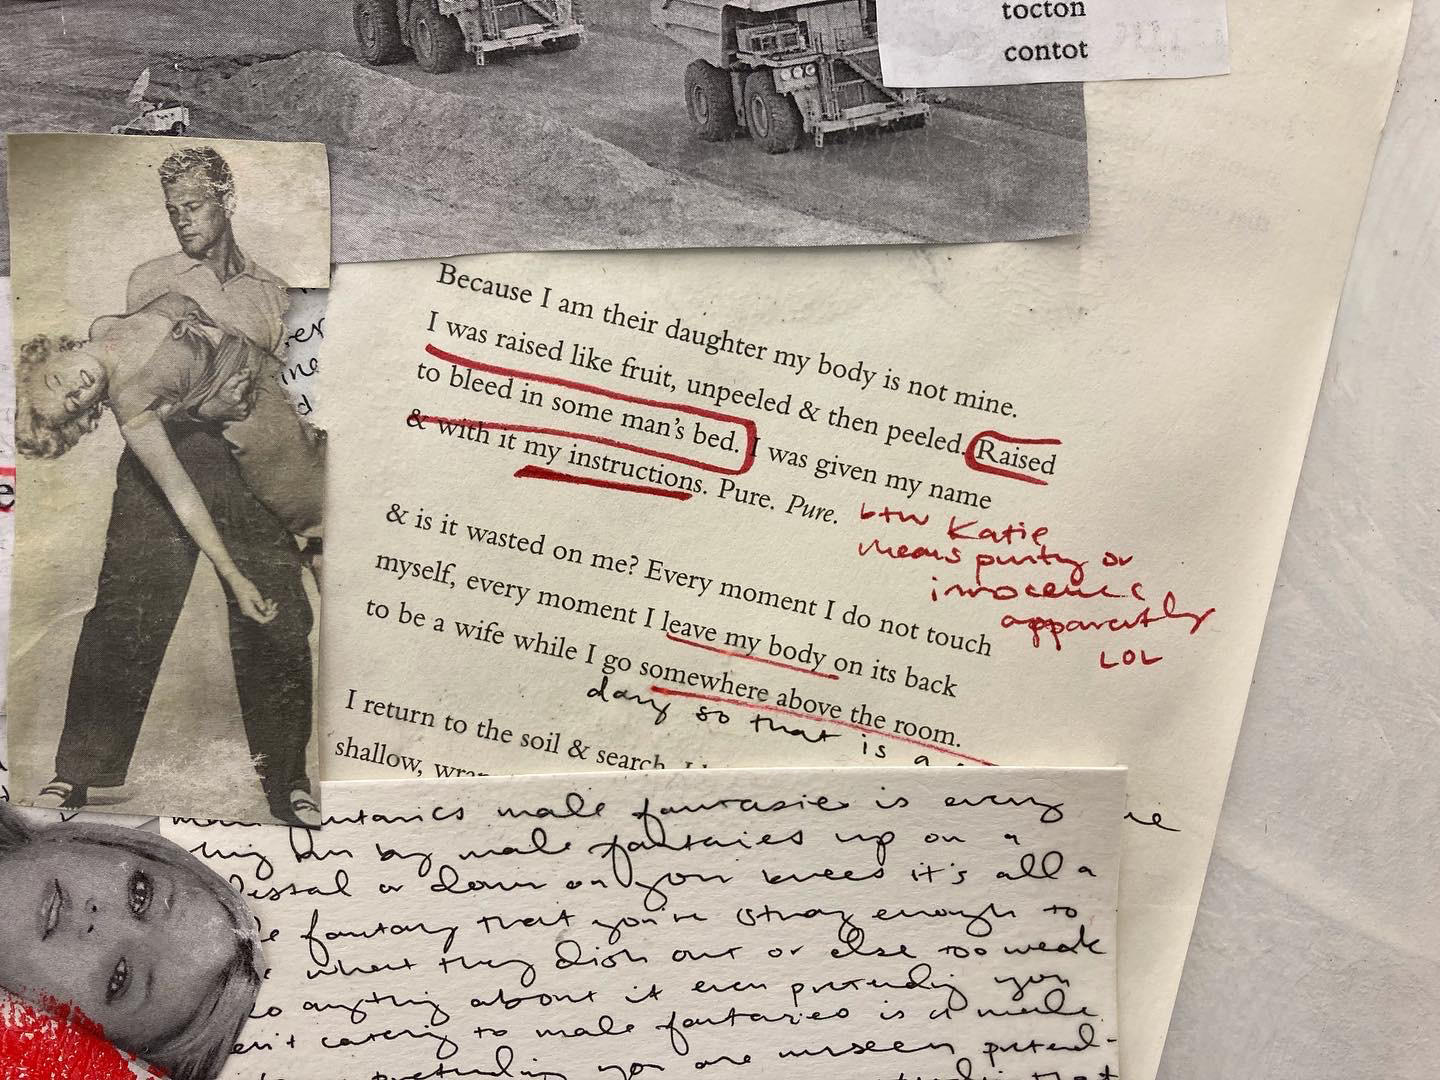 tocton
contot
Because I am their daughter my body is not mine.
I was raised like fruit, unpeeled & then peeled. Raised
to bleed in some man's bed. I was given my name
& with it my instructions. Pure. Pure.
btw Katie
means purity or
innocence
apparently
LOL
& is it wasted on me? Every moment I do not touch
myself, every moment I leave my body on its back
to be a wife while I go somewhere above the room.
day so that is a
I return to the soil & search.
shallow,
male fantasies is every
by male fantasies up on a
or down on your knees it's all a
fantasy that you're strong enough to
what they dish out or else too weak
anything about it even pretending you
catering to male fantasies is a male
you are unseen pretend-